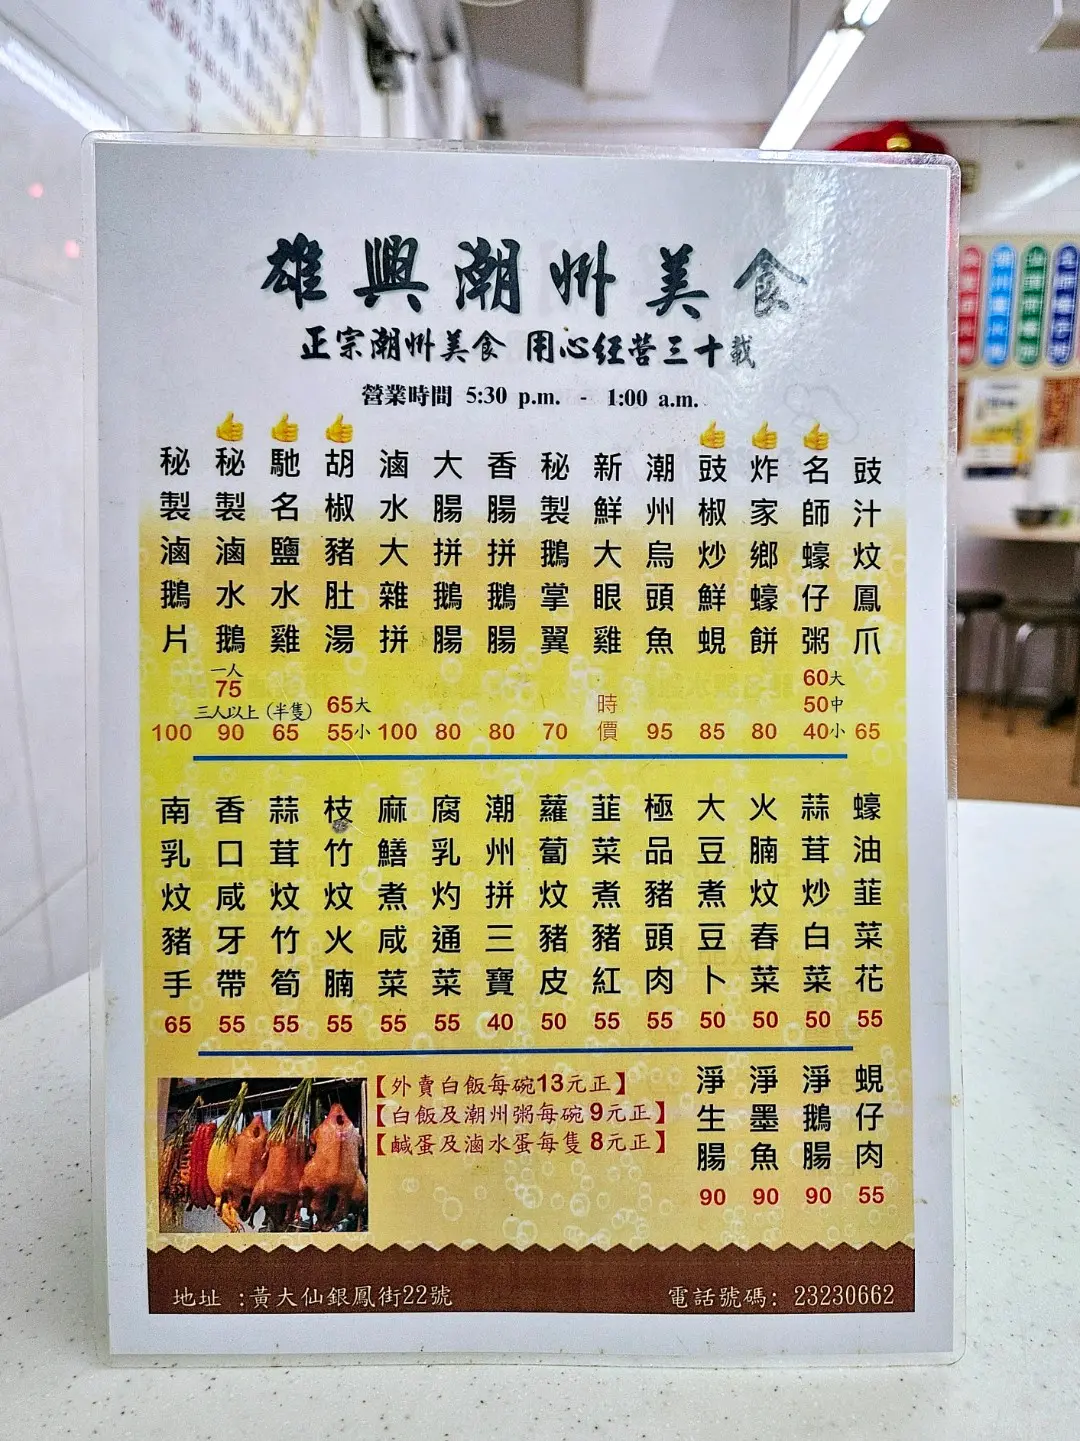 雄興潮州美食
正宗潮州美食 用心經營三十載
營業時間 5:30 p.m. - 1:00 a.m.
秘製滷鵝片
100
秘製滷水鵝
一人
75
三人以上
90
馳名鹽水雞
(半隻)
65
胡椒豬肚湯
65大
55小
滷水大雜拼
100
大腸拼鵝腸
80
香腸拼鵝腸
80
秘製鵝掌翼
70
新鮮大眼雞
時價
潮州烏頭魚
95
豉椒炒鮮蜆
85
炸家鄉蠔餅
80
名師蠔仔粥
60大
50中
40小
豉汁炆鳳爪
65
南乳炆豬手
65
香口咸牙帶
55
蒜茸炆竹筍
55
枝竹炆火腩
55
麻鱔煮咸菜
55
腐乳灼通菜
55
潮州拼三寶
40
蘿蔔炆豬皮
50
韮菜煮豬紅
55
極品豬頭肉
55
大豆煮豆卜
50
火腩炆春菜
50
蒜茸炒白菜
50
蠔油韮菜花
55
【外賣白飯每碗13元正】
【白飯及潮州粥每碗9元正】
【鹹蛋及滷水蛋每隻8元正】
淨生腸
90
淨墨魚
90
淨鵝腸
90
蜆仔肉
55
地址 :黃大仙銀鳳街22號
電話號碼: 23230662